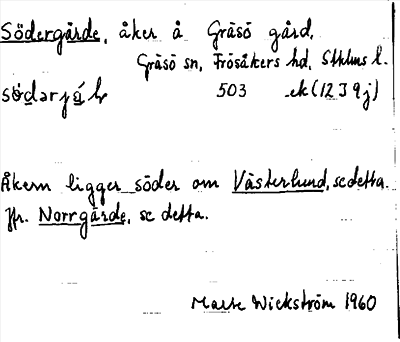 Södergårde, åker å Gräsö gård,
Gräsö sn, Frösåkers hd, Sthlms l.
503 ek (12J9j)
Åkern ligger söder om Västerlund, se detta.
Jfr. Norrgårde, se detta.
Wickström 1960